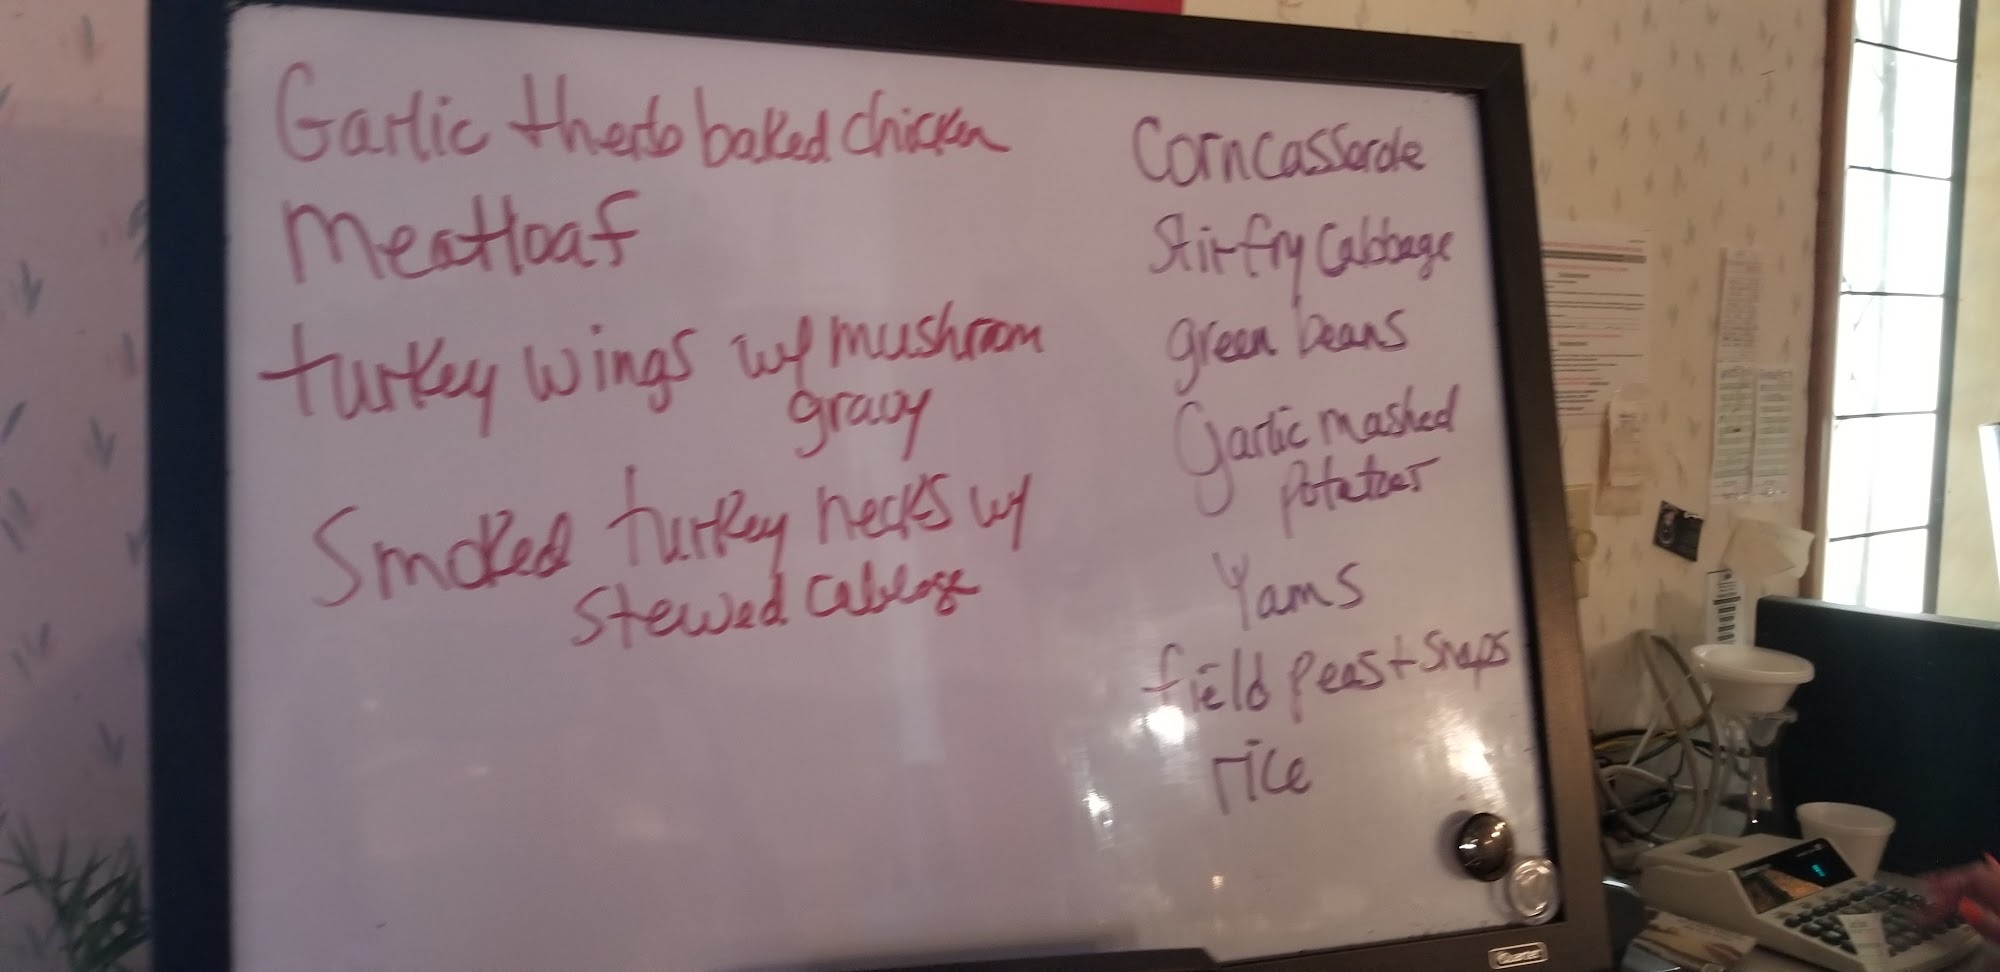 Garlic + herb baked chicken
Meatloaf
turkey wings w/ mushroom
gravy
Smoked turkey necks w/
stewed cabbage
Corn casserole
Stir fry Cabbage
green beans
Garlic mashed
potatoes
Yams
field peas + snaps
rice
Quartet